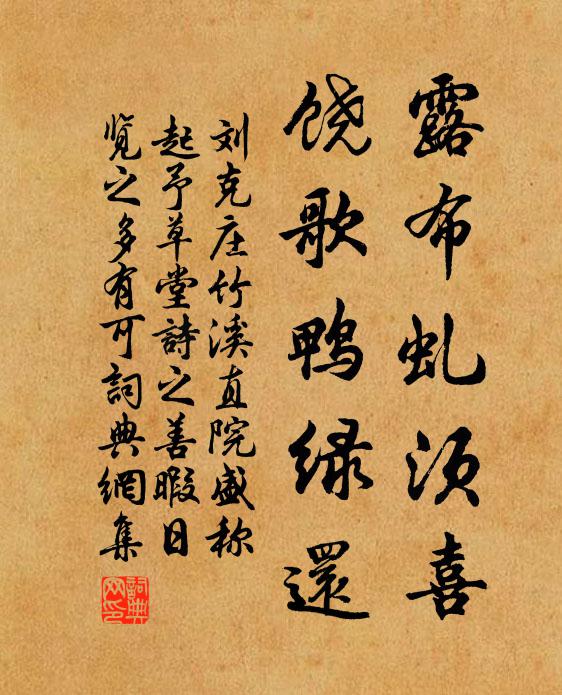 露布虬须喜
饶歌鸭绿還
刘克庄竹溪直院盛称
起予草堂詩之善暇日
览之多有可詞典網集
詞典
网印